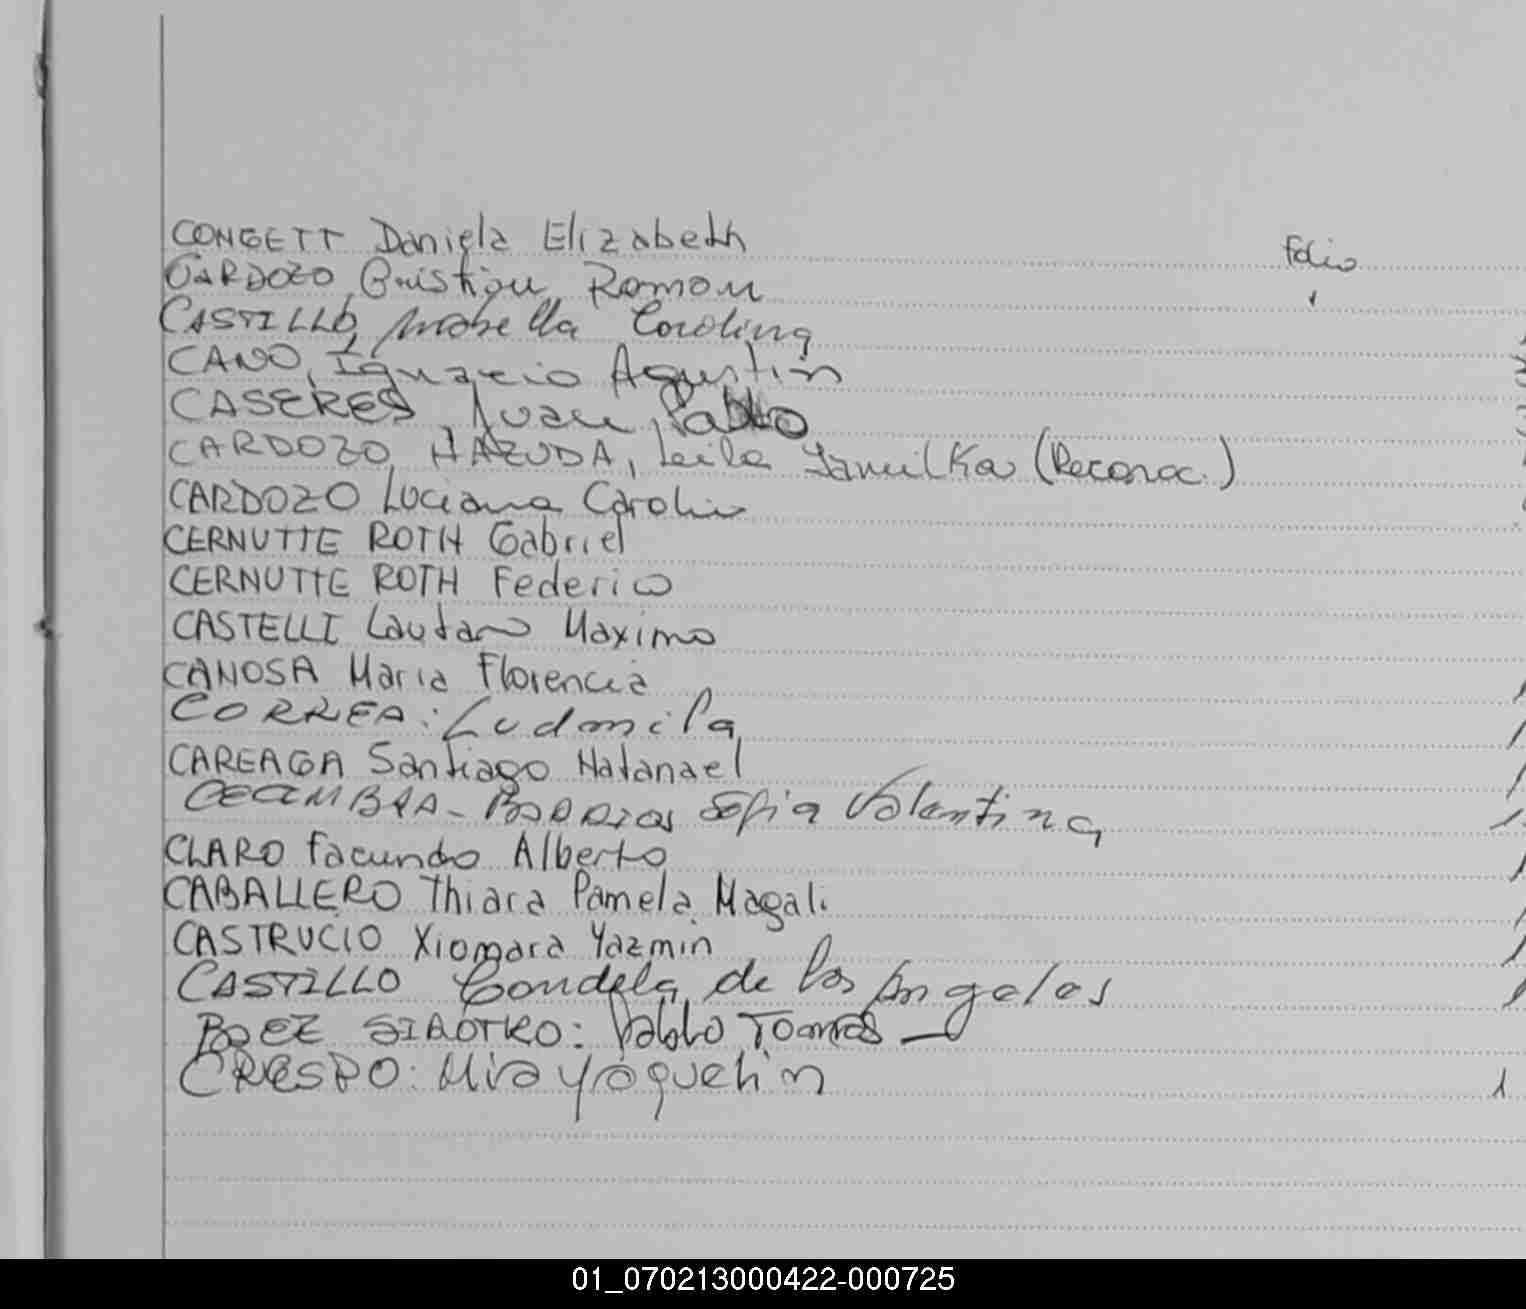 CONGETT Daniela Elizabeth
Folio
CARDOZO, Cristian Ramon
CASTILLO, Morella Carolina
CANO, Ignacio Agustin
CASERES Juan Pablo
CARDOZO HAZUDA, Leila Yamilka (Reconoc.)
CARDOZO Luciana Carolin
CERNUTTE ROTH Gabriel
CERNUTTE ROTH Federico
CASTELLI Lautaro Maximo
CANOSA Maria Florencia
CORREA: Ludmila
CAREAGA Santiago Natanael
Sofia Valentina
CLARO Facundo Alberto
CABALLERO Thiara Pamela Magali
CASTRUCIO Xiomara Yazmin
CASTILLO Candela de los Angeles
BAEZ Pablo Tomas
CRESPO: Mia Yaquelin
01_070213000422-000725